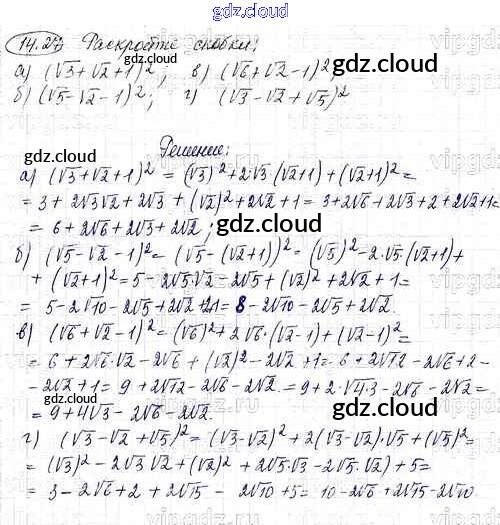 gdz.cool
14.27 Раскройте скобки:
а) (√3+√2+1)²; в) (√6+√2-1)²;
б) (√5-√2-1)²; г) (√3-√2+√5)²
gdz.cool
gdz.cool
Решение:
gdz.cool
а) (√3+√2+1)² = (√3)²+2·√3·(√2+1)+(√2+1)²=
= 3+2√3√2+2√3+(√2)²+2√2+1= 3+2√6+2√3+2+2√2+1=
= 6+2√6+2√3+2√2;
gdz.cool
б) (√5-√2-1)²= (√5-(√2+1))²= (√5)²-2·√5·(√2+1)+
+ (√2+1)²= 5-2√5√2-2√5+(√2)²+2√2+1=
= 5-2√10-2√5+2√2+2+1= 8-2√10-2√5+2√2.
gdz.cool
в) (√6+√2-1)²= (√6)²+2√6·(√2-1)+(√2-1)²=
= 6+2√6·√2-2√6+(√2)²-2√2+1= 6+2√12-2√6+2-
-2√2+1= 9+2√12-2√6-2√2= 9+2·√4·3-2√6-2√2=
= 9+4√3-2√6-2√2.
gdz.cool
gdz.cool
г) (√3-√2+√5)²= (√3-√2)²+2(√3-√2)·√5+(√5)²=
= (√3)²-2√3√2+(√2)²+2√5·√3-2√5·√2)+5=
= 3-2√6+2+2√15-2√10+5= 10-2√6+2√15-2√10.
gdz.cool